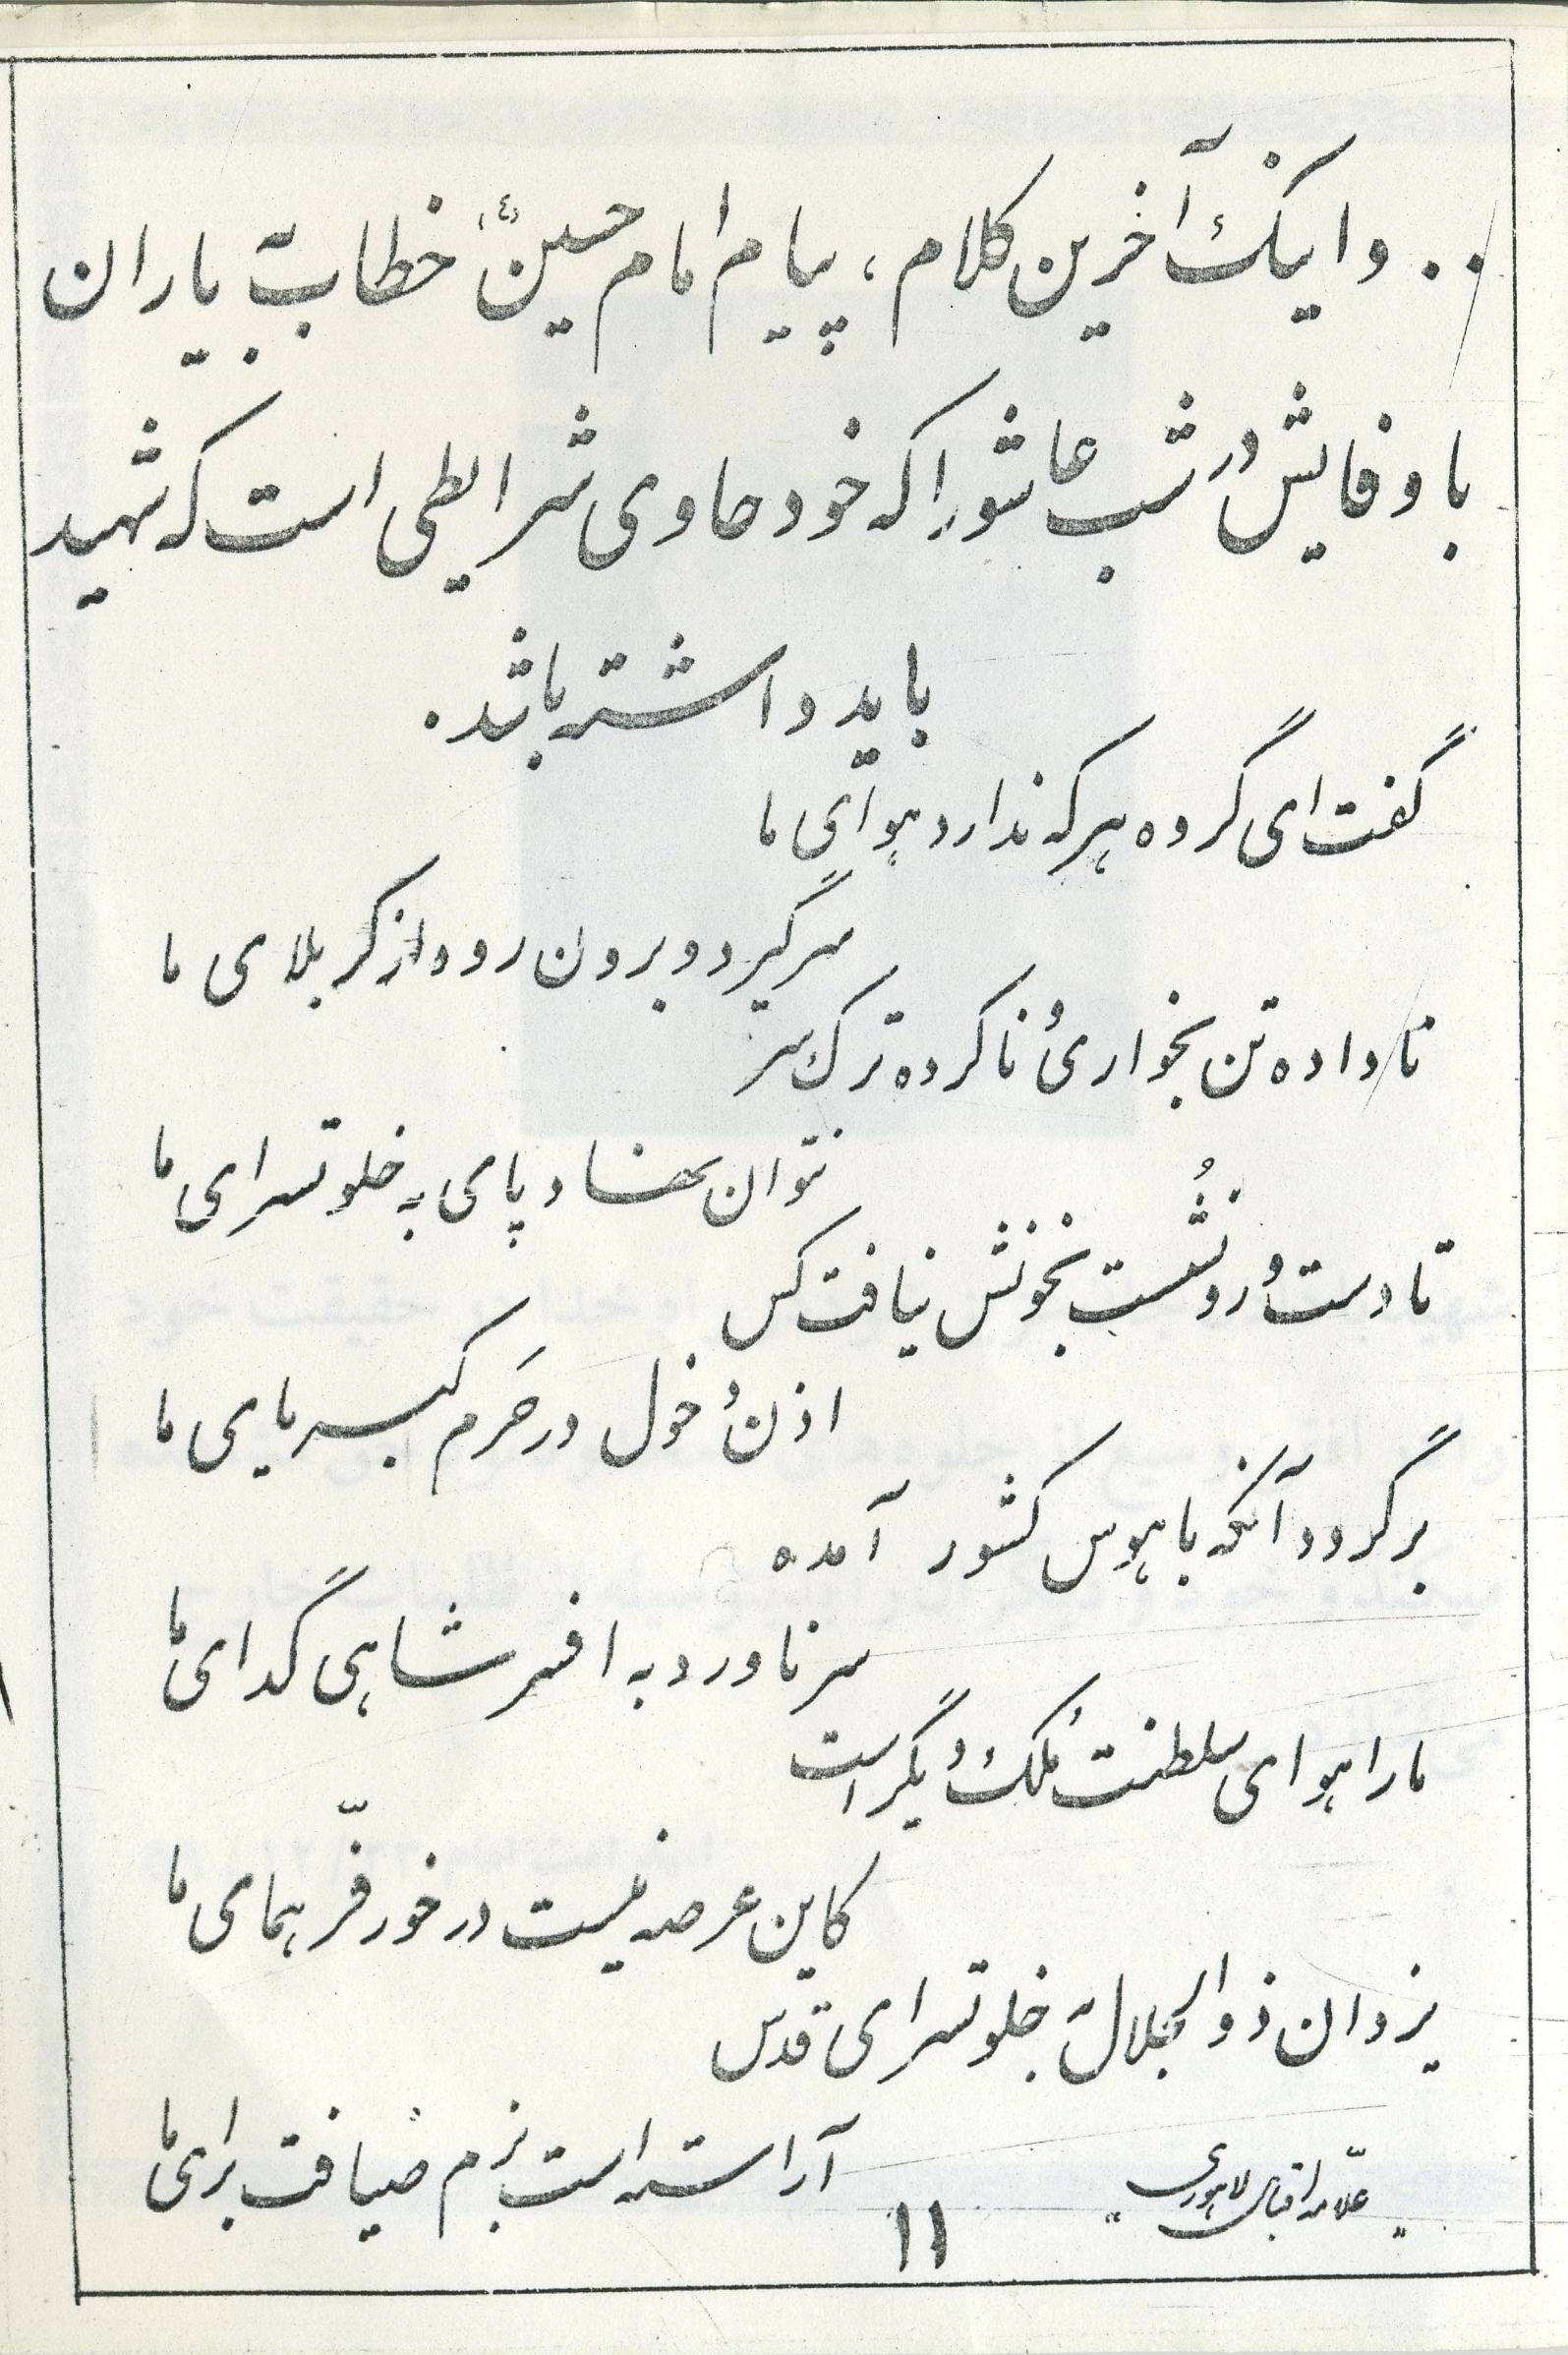 .. و اینک آخرین کلام ، پیام امام حسین (ع) خطاب به یاران
با وفایش در شب عاشورا که خود حاوی شرایطی است که شهید
باید داشته باشد .
گفت ای گروه هر که ندارد هوای ما
سر گیرد و برون رود از کربلای ما
نا داده تن بخواری و نا کرده ترک سر
نتوان نهاد پای به خلوتسرای ما
تا دست و رو نشُست بخونش نیافت کس
اذن دخول در حَرم کبریایی ما
برگردد آنکه با هوس کشور آمده
سر ناورد به افسر شاهی گدای ما
ما را هوای سلطنت مُلک دیگر است
کاین عرصه نیست در خور فرّ همای ما
یزدان ذوالجلال به خلوتسرای قدس
آراسته است بزم ضیافت برای ما
" علّامه اقبال لاهوری "
۱۱